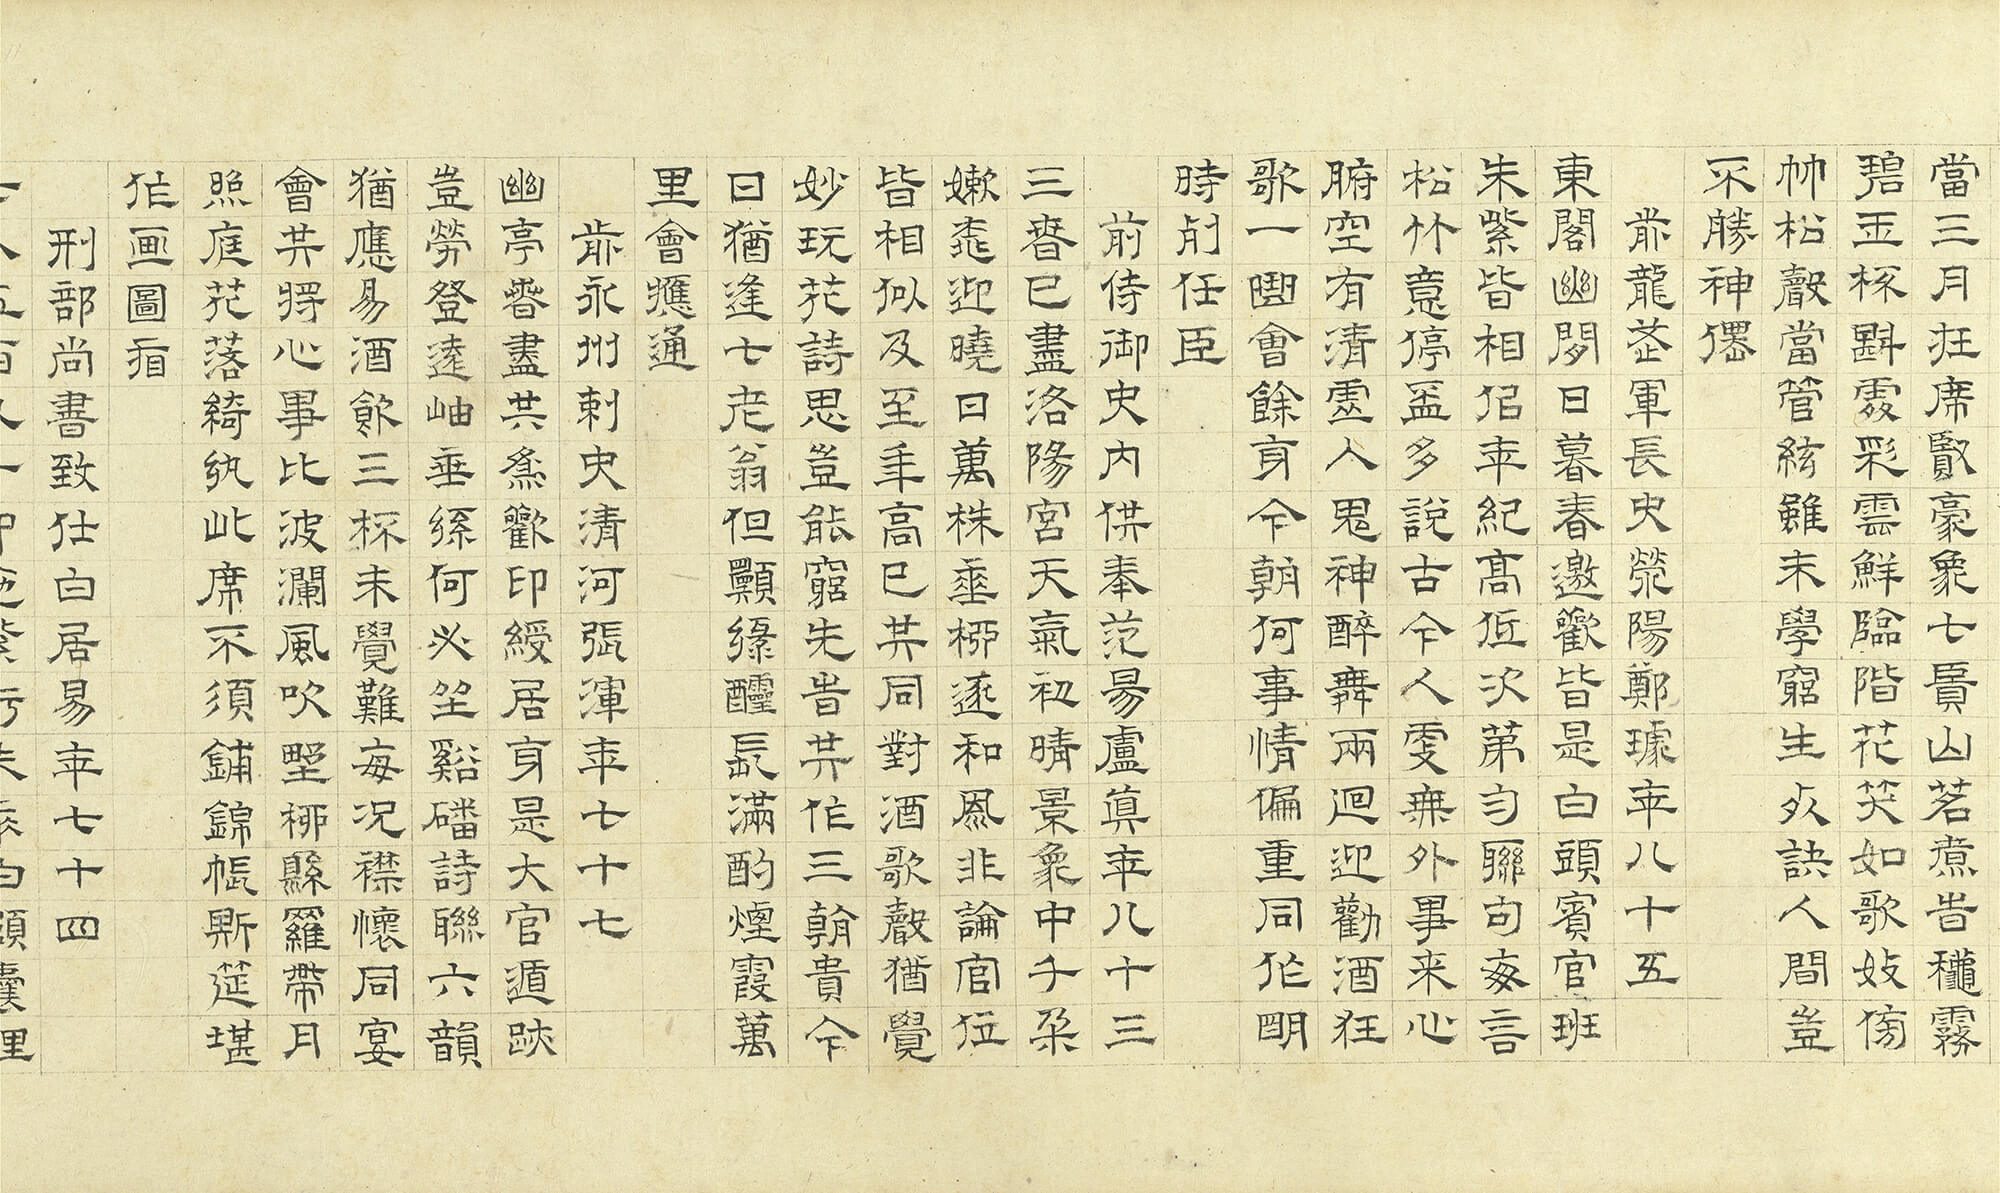 當三月在席賢豪象七賢山茗煮皆穠霧
碧玉杯斟霞彩雲鮮臨階花笑如歌妓傍
竹松聲當管絃雖未學窮生死訣人間豈
不勝神僊
前龍武軍長史滎陽鄭㩀年八十五
東閣幽閑日暮春邀歡皆是白頭賓官班
朱紫皆相侶年紀高低次第匀聯句每言
松竹意停盃多說古今人更無外事來心
腑空有清虛入思神醉舞兩迴迎勸酒狂
歌一曲會餘身今朝何事情偏重同作明
時列任臣
前侍御史内供奉范陽盧真年八十三
三春已盡洛陽宮天氣初晴景象中千朵
嫩桃迎曉日萬株垂柳逐和風非論官位
皆相似及至年高已共同對酒歌聲猶覺
妙玩花詩思豈能窮先皆共作三朝貴今
日猶逢七老翁但願綠醽長滿酌煙霞萬
里會應通
前永州刺史清河張渾年七十七
幽亭春盡共為歡印綬居身是大官遁跡
豈勞登遠岫垂絲何必坐谿磻詩聯六韻
猶應易酒飲三杯未覺難每況襟懷同宴
會共將心事比波瀾風吹野柳懸羅帶月
照庭花落綺紈此席不須鋪錦帳斯筵堪
作画圖看
刑部尚書致仕白居易年七十四
七人五百八十四拖紫紆朱垂白鬚囊裡